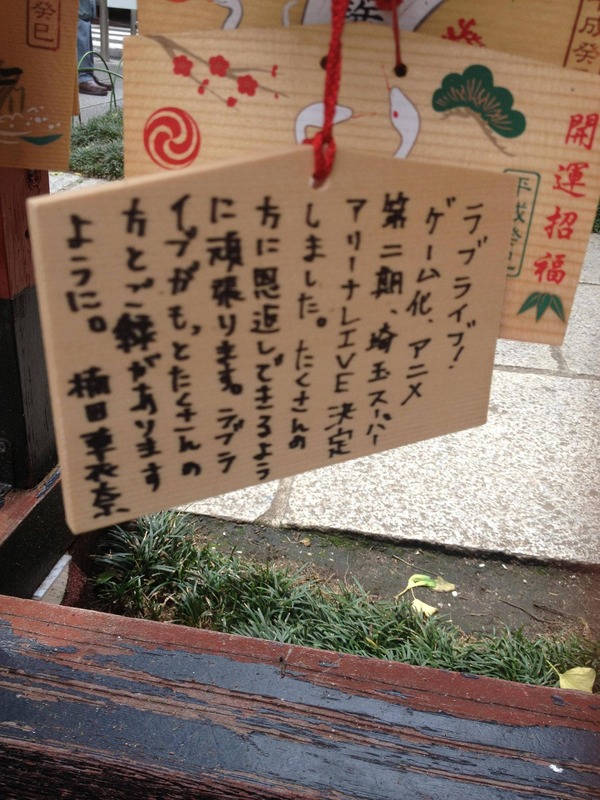 ラブライブ!
ゲーム化、アニメ
第二期、埼玉スーパー
アリーナLIVE決定
しました。たくさんの
方に恩返しできるよう
に頑張ります。ラブラ
イブがもっとたくさんの
方とご縁があります
ように。 楠田亜衣奈
開運招福
平成癸巳
成癸巳
癸巳